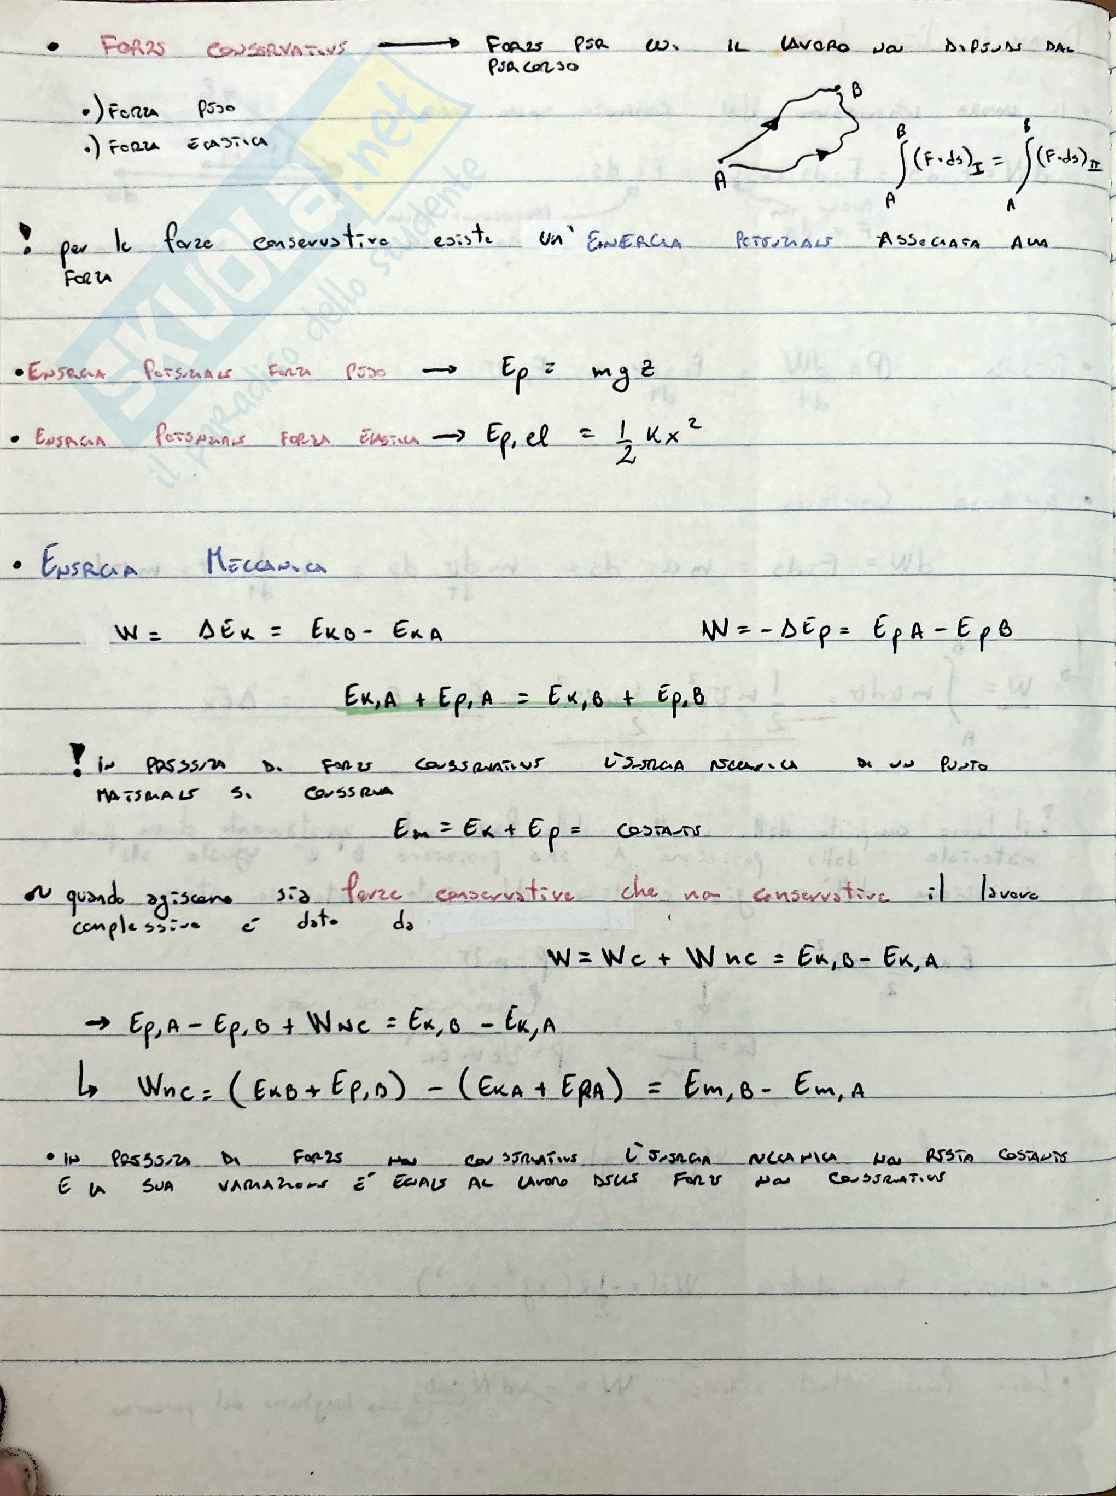 • FORZE CONSERVATIVE → FORZE PER CUI IL LAVORO NON DIPENDE DAL
PERCORSO
•) FORZA PESO
•) FORZA ELASTICA
A B
∫_A^B (F•ds)_I = ∫_A^B (F•ds)_II
! per le forze conservative esiste un' ENERGIA POTENZIALE ASSOCIATA ALLA
FORZA
• ENERGIA POTENZIALE FORZA PESO → Ep = mgz
• ENERGIA POTENZIALE FORZA ELASTICA → Ep,el = 1/2 Kx²
• ENERGIA MECCANICA
W = ΔEK = EKB - EKA W = -ΔEp = EpA - EpB
EK,A + Ep,A = EK,B + Ep,B
! IN PRESENZA DI FORZE CONSERVATIVE L'ENERGIA MECCANICA DI UN PUNTO
MATERIALE SI CONSERVA
Em = EK + Ep = COSTANTE
~ quando agiscono sia forze conservative che non conservative il lavoro
complessivo é dato da
W = Wc + Wnc = EK,B - EK,A
→ Ep,A - Ep,B + WNC = EK,B - EK,A
↳ Wnc = (EKB + Ep,B) - (EKA + EPA) = Em,B - Em,A
• IN PRESENZA DI FORZE NON CONSERVATIVE L'ENERGIA MECCANICA NON RESTA COSTANTE
E LA SUA VARIAZIONE É EGUALE AL LAVORO DELLE FORZE NON CONSERVATIVE
SKUOLA.net
il paradiso dello studente